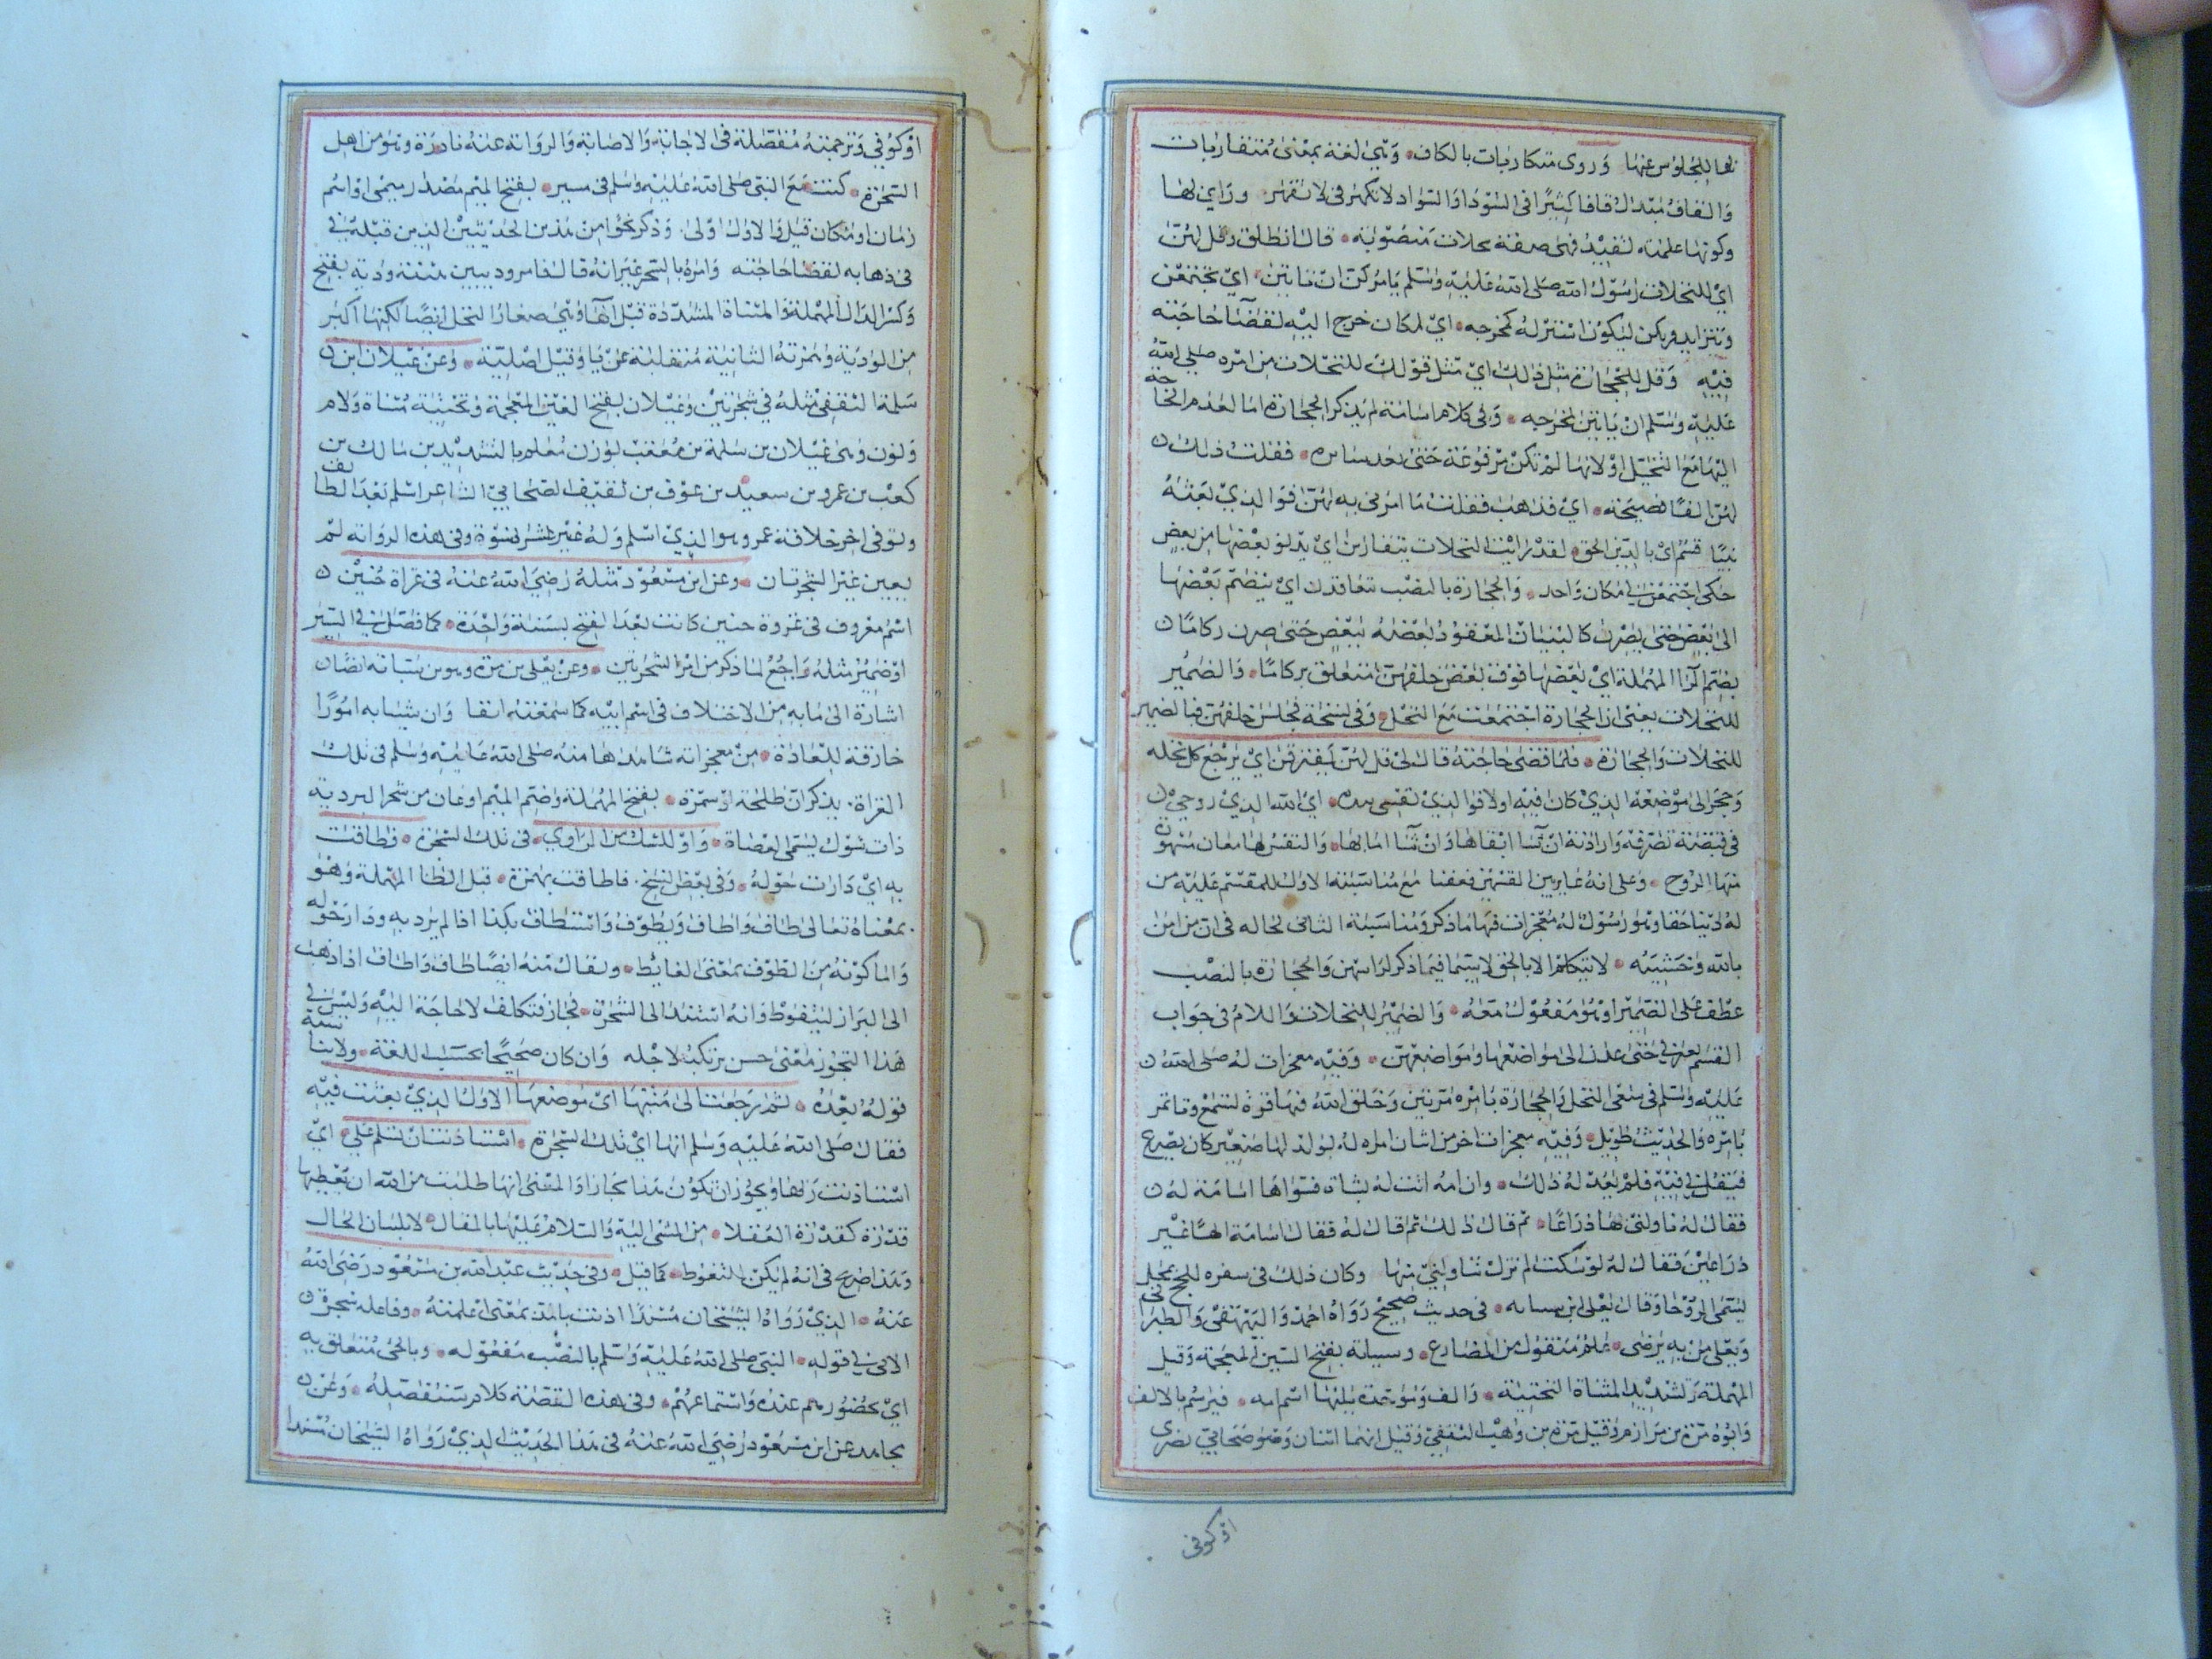 وروى متكاربات بالكاف وهي لغة بمعنى متقاربات
والقاف مبدلة قافا كثيرا في السوداء والسواد لا تكهر في لا تقهر وراى لها
وكونها علمية لتقييد فهي صفة نخلات منصوبة قال انطلق وقل لهن
اي للنخلات رسول الله صلى الله عليه وسلم يامركن ان تاتين اي تجتمعن
اي لمكان خرج اليه لقضاء حاجته
فيه وقل للحجارة مثل ذلك اي مثل قولك للنخلات من امره صلى الله
عليه وسلم ان ياتين لمخرجه وفي كلام اسامة لم يذكر الحجارة اما لعدم الحاجة
اليها مع النخل او لانها لم تكن مرفوعة حتى فقلت ذلك
لهن اي فذهب فقلت ما امرني به لهن فوالذي بعثه
نبيا قسم اي بالدين الحق لقد رايت النخلات يتقاربن اي يدنو بعضها من بعض
حتى اجتمعن في مكان واحد والحجارة بالنصب يتعاقدن اي ينضم بعضها
الى بعض حتى يصرن كالبنيان المعقود بعضه ببعض حتى صرن ركاما
بضم الراء المهملة اي بعضها فوق بعض خلفهن متعلق بركاما والضمير
للنخلات يعني ان الحجارة اجتمعت مع النخل وفي نسخة فجلس خلفهن فالضمير
للنخلات والحجارة فلما قضى حاجته قال لي قل لهن يفترقن اي يرجع كل نخلة
وحجر الى موضعه الذي كان فيه اولا فوالذي نفسي بيده اي الله الذي روحي
في قبضة تصرفه وارادته ان شاء ابقاها وان شاء اماتها والنفس لها معان مشهورة
منها الروح وعلى انه غاير بين القسمين تفننا مع مناسبة الاول للمقسم عليه من
بالله وتحشيته
عطف على الضمير او هو مفعول معه والضمير للنخلات واللام في جواب
القسم يعني حتى عدن الى مواضعها ومواضعهن وفيه معجزات له صلى الله
عليه وسلم في سعي النخل والحجارة بامره مرتين وخلق الله فيها قوة لتسمع وتاتمر
بامره والحديث طويل وفيه معجزات اخر من اتيان امراة له بولد لها صغير كان يصرع
فتفل في فيه فلم يعد له ذلك وان امه اتت له بشاة فشواها اسامة له
فقال له ناولني لها ذراعا ثم قال ذلك ثم قال له فقال اسامة الها غير
ذراعين فقال له لو سكت لم تزل تناولني منها وكان ذلك في سفره للحج بمحل
يسمى الروحا وقال يعلى ابن سيابه في حديث صحيح رواه احمد والبيهقي والطبراني
ويعلى من به يرضى علم منقول من المضارع وسيابة بفتح السين المهملة وقيل
المهملة وتشديد المثناة التحتية والف وموحدة يليها اسم امه فيرسم بالالف
وابوه مرة بن مرازم وقيل مرة بن وهب الثقفي وقيل انهما اثنان وهو صحابي بصري
اوكوفي
اوكوفي وترجمته مفصلة في الاصابة والرواية عنه نادرة وهو من اهل
الشجرة كنت مع النبي صلى الله عليه وسلم في مسير بفتح الميم مصدر ميمي او اسم
زمان او مكان قيل والاول اولى وذكر نحوا من هذين الحديثين اللذين قبله في
في ذهابه لقضا حاجته وامره بالشجر غير انه قال فامر وديتين تثنية ودية بفتح
وكسر الدال المهملة والمثناة المشددة قبل الهاء وهي صغار النخل ايضا لكنها اكبر
من الودية وهمزته الثانية منقلبة عن يا وقيل اصلية وعن غيلان ابن
سلمة الثقفي مثله في شجرتين وغيلان بفتح الغين المعجمة وتحتية مثناة ولام
ونون وهي غيلان بن سلمة بن معتب بوزن معلم بالتشديد بن مالك بن
كعب بن عمرو بن سعيد بن عوف بن ثقيف الصحابي الشاعر اسلم بعد الطائف
وتوفي اخر خلافة عمر وهو الذي اسلم وله عشر نسوة وفي هذه الرواية لم
يعين غير الشجرتان وعن ابن مسعود مثله رضي الله عنه في غزاة حنين
اسم معروف في غزوة حنين كانت بعد الفتح بسنة واحدة كما فصل في السير
او ضمير مثله راجع لما ذكر من امر الشجرتين وعن يعلى بن مرة وهو بن سيابة ايضا
اشارة الى ما به من الاختلاف في اسم ابيه كما سمعته انفا وان شيابه امورا
خارقة للعادة من معجزاته شاهدها منه صلى الله عليه وسلم في تلك
الغزاة يذكر ان طلحة او سمرة بفتح المهملة وضم الميم نوعان من شجر البردية
ذات شوك يسمى العضاة واو للشك من الراوي في تلك الشجرة فطافت
به اي دارت حوله وفي بعض النسخ فاطافت بهمزة قبل الطا المهملة وهو
بمعناه تعالى طاف واطاف ويطوف واستطاف بكذا اذا لم يرد به ودار حوله
واما كونه من الطوف بمعنى الغائط ويقال منه ايضا طاف واطاف اذا ذهب
الى البراز ليتغوط وانه استند الى الشجرة فجاز فتكلف لا حاجة اليه وليس في
هذا التجوز معنى حسن يرتكب لاجله وان كان صحيحا بحسب اللغة ولا يناسبه
قوله بعده ثم رجعت الى منبتها اي موضعها الاول الذي نبتت فيه
فقال صلى الله عليه وسلم انها اي تلك الشجرة استاذنت ان تسلم علي اي
استاذنت ربها ويجوز ان تكون هذا مجازا والمعنى انها طلبت من الله ان يعطيها
قدرة كقدرة العقلا من المشي اليه والسلام عليها بالمقال لا بلسان الحال
وهذا صريح في انه لم يكن للتغوط كما قيل وفي حديث عبد الله بن مسعود رضي الله
عنه الذي رواه الشيخان مسندا اذنت بالمد بمعنى اعلمته وفاعله شجرة
الاتي في قوله النبي صلى الله عليه وسلم بالنصب مفعوله وبالجن متعلق به
اي بحضورهم عنده واستماعهم وفي هذه القصة كلام سنفصله وعن
مجاهد عن ابن مسعود رضي الله عنه في هذا الحديث الذي رواه الشيخان مسندا